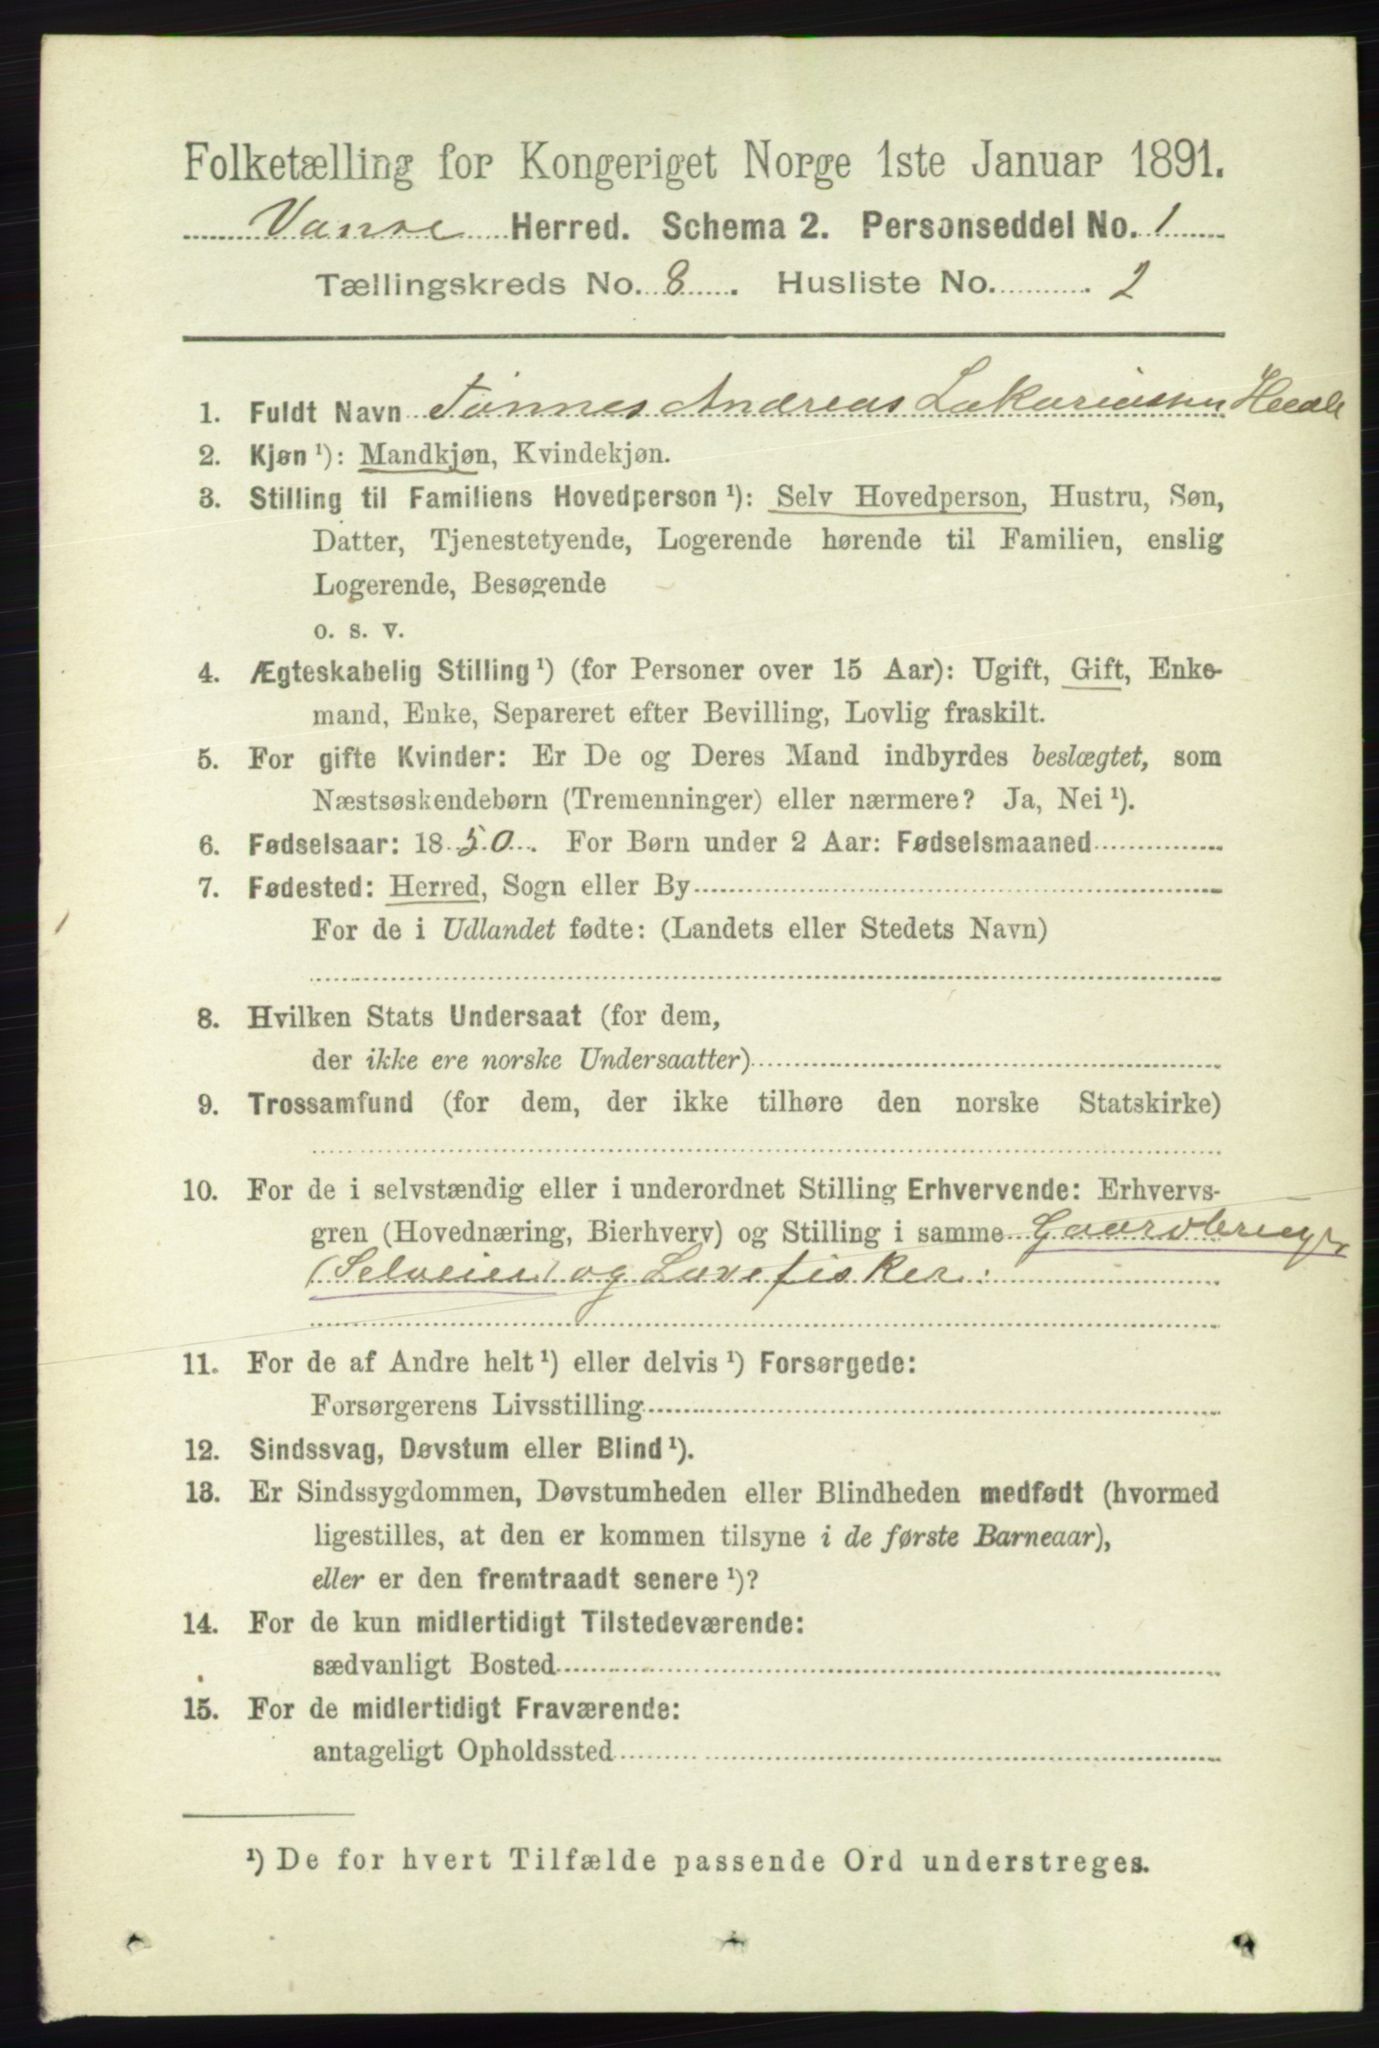 Folketælling for Kongeriget Norge 1ste Januar 1891.
Vanse Herred. Schema 2. Personseddel No. 1
Tællingskreds No. 8. Husliste No. 2
1. Fuldt Navn Tønnes Andreas Zakariassen
2. Kjøn ¹): Mandkjøn, Kvindekjøn.
3. Stilling til Familiens Hovedperson ¹): Selv Hovedperson, Hustru, Søn,
Datter, Tjenestetyende, Logerende hørende til Familien, enslig
Logerende, Besøgende
o. s. v.
4. Ægteskabelig Stilling ¹) (for Personer over 15 Aar): Ugift, Gift, Enke-
mand, Enke, Separeret efter Bevilling, Lovlig fraskilt.
5. For gifte Kvinder: Er De og Deres Mand indbyrdes beslægtet, som
Næstsøskendebørn (Tremenninger) eller nærmere? Ja, Nei ¹).
6. Fødselsaar: 1850. For Børn under 2 Aar: Fødselsmaaned
7. Fødested: Herred, Sogn eller By
For de i Udlandet fødte: (Landets eller Stedets Navn)
8. Hvilken Stats Undersaat (for dem,
der ikke ere norske Undersaatter)
9. Trossamfund (for dem, der ikke tilhøre den norske Statskirke)
10. For de i selvstændig eller i underordnet Stilling Erhvervende: Erhvervs-
gren (Hovednæring, Bierhverv) og Stilling i samme Gaardbruger
(Selveier) og Laxefisker.
11. For de af Andre helt ¹) eller delvis ¹) Forsørgede:
Forsørgerens Livsstilling
12. Sindssvag, Døvstum eller Blind ¹).
13. Er Sindssygdommen, Døvstumheden eller Blindheden medfødt (hvormed
ligestilles, at den er kommen tilsyne i de første Barneaar),
eller er den fremtraadt senere ¹)?
14. For de kun midlertidigt Tilstedeværende:
sædvanligt Bosted
15. For de midlertidigt Fraværende:
antageligt Opholdssted
¹) De for hvert Tilfælde passende Ord understreges.